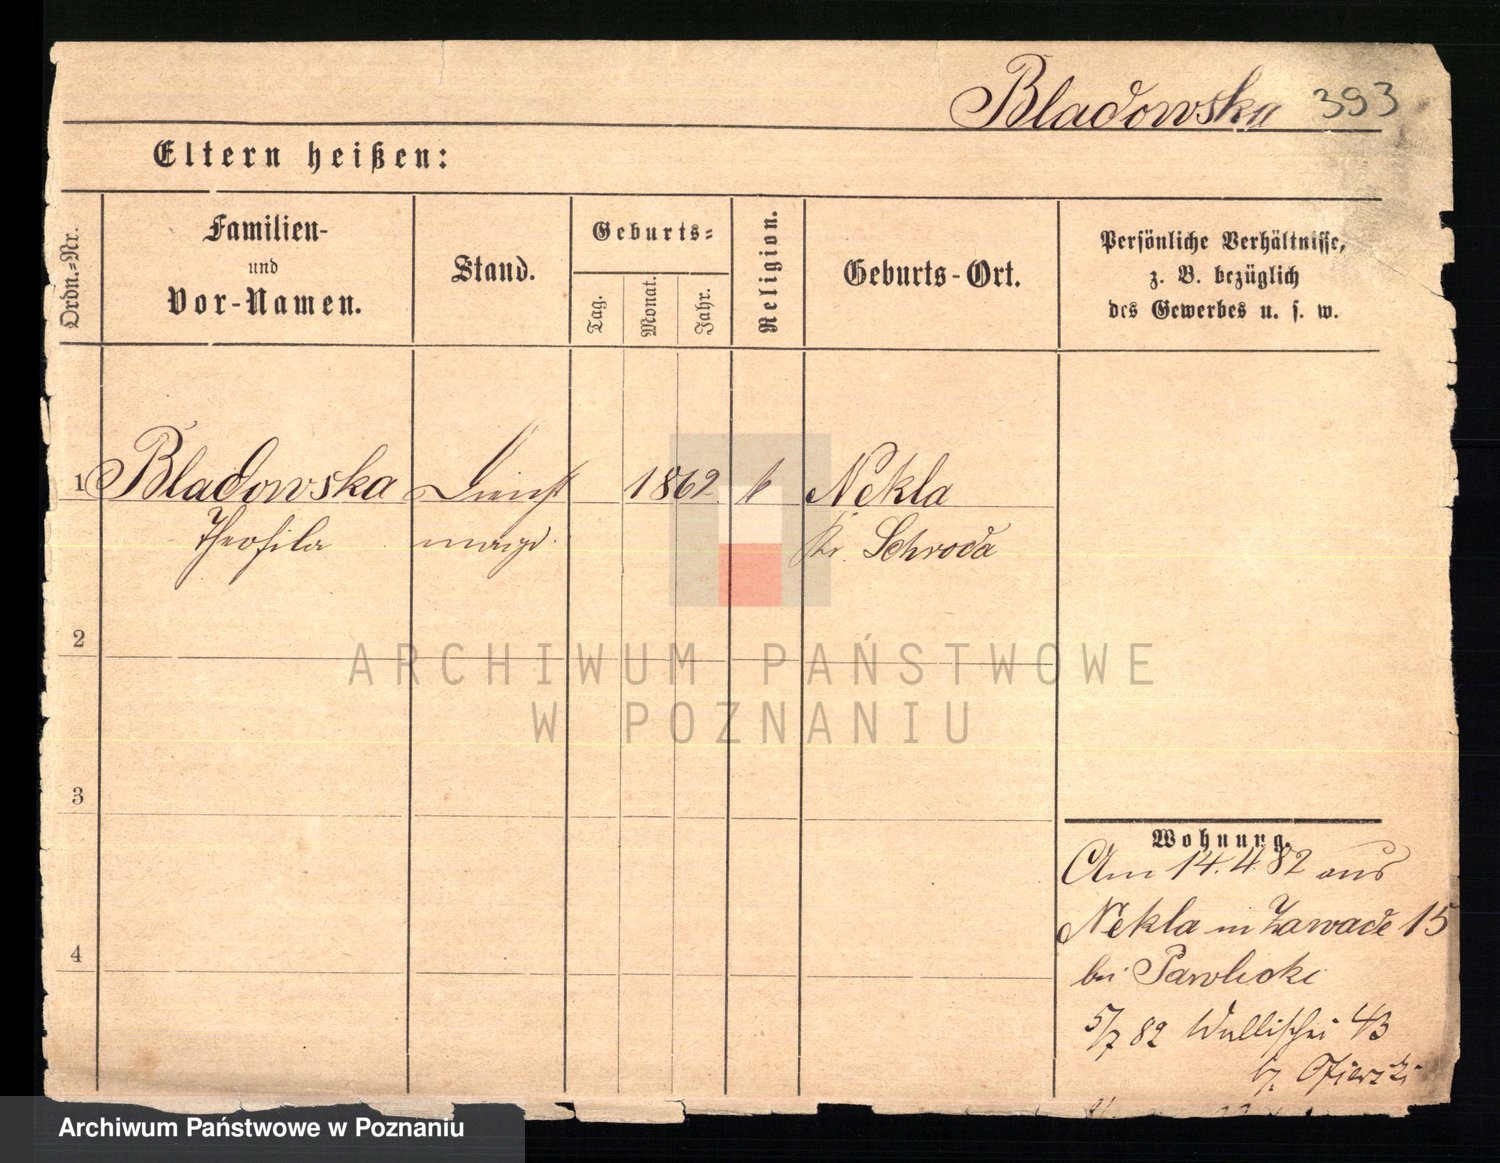 Bladowska 393
Eltern heißen:
Ordn.-Nr.
Familien-
und
Vor-Namen.
Stand.
Geburts-
Tag.
Monat.
Jahr.
Religion.
Geburts-Ort.
Persönliche Verhältnisse,
z. B. bezüglich
des Gewerbes u. s. w.
1 Bladowska Dienst 1862 k Nekla
Theofila magd. Kr. Schroda
2
3
4
Wohnung.
Am 14.4.82 aus
Nekla in Zawade 15
bei Pawlicki
5/7 82 Wallischei 43
b.
ARCHIWUM PAŃSTWOWE
W POZNANIU
Archiwum Państwowe w Poznaniu